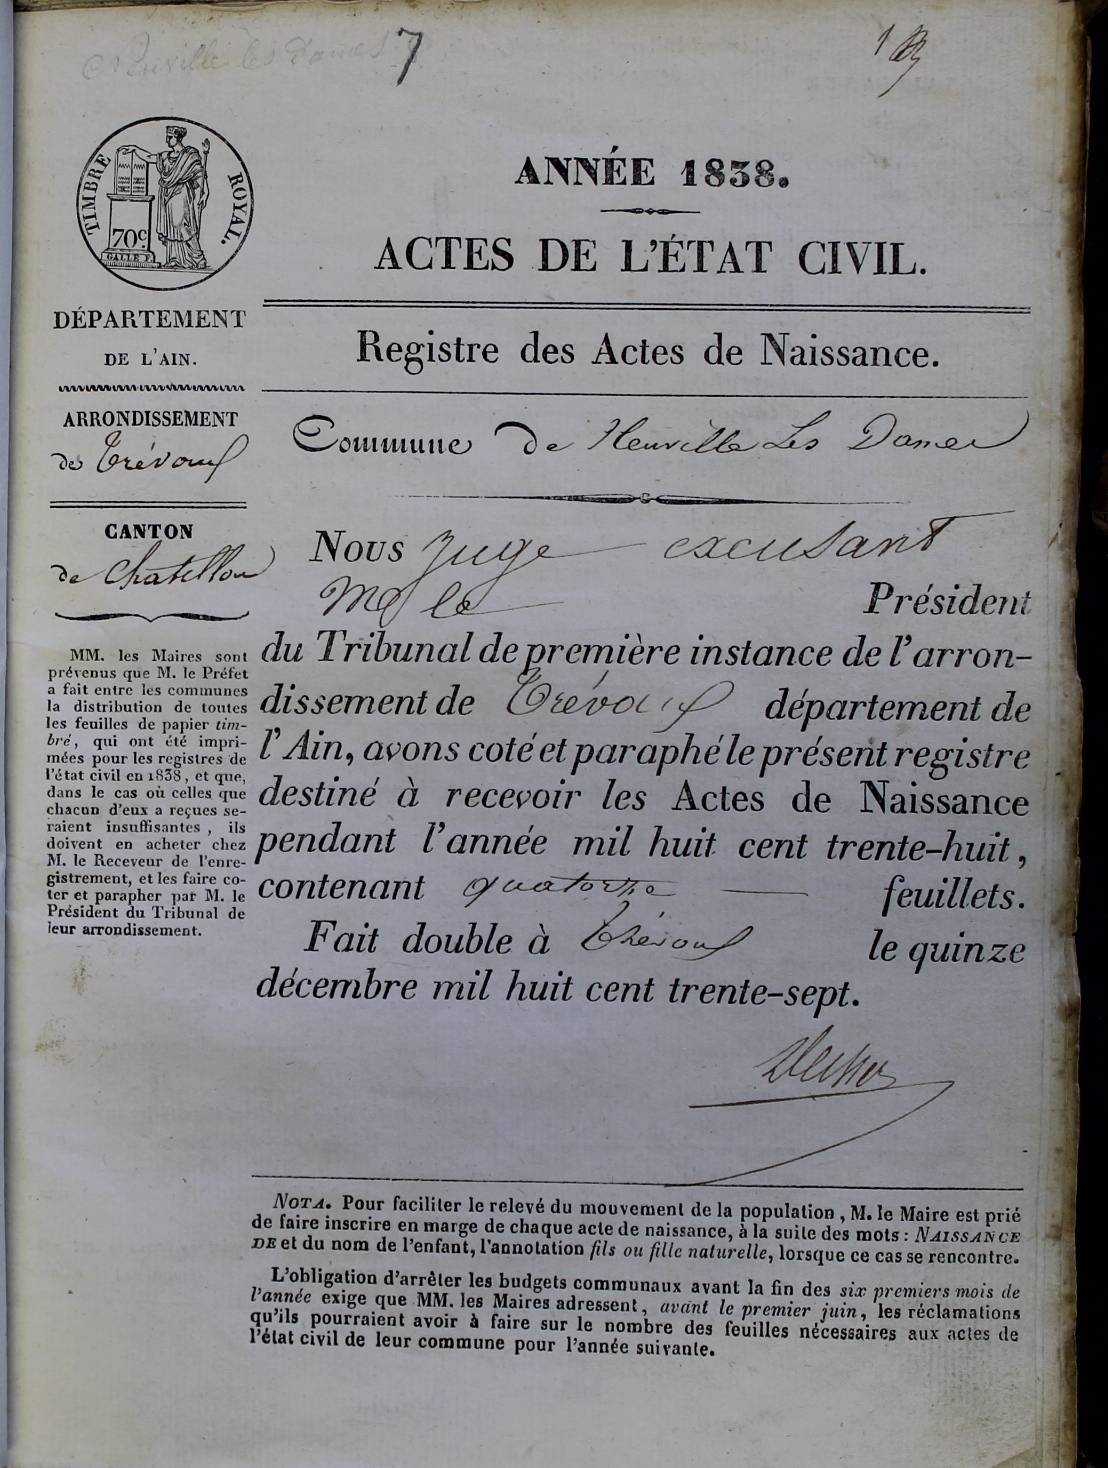 Neuville les Dames 7
1
TIMBRE ROYAL.
70c.
GALLE
ANNÉE 1838.
ACTES DE L'ÉTAT CIVIL.
DÉPARTEMENT
DE L'AIN.
Registre des Actes de Naissance.
ARRONDISSEMENT
de Trévoux
Commune de Neuville Les Dames
CANTON
de Chatillon
MM. les Maires sont
prévenus que M. le Préfet
a fait entre les communes
la distribution de toutes
les feuilles de papier tim-
bré, qui ont été impri-
mées pour les registres de
l'état civil en 1838, et que,
dans le cas où celles que
chacun d'eux a reçues se-
raient insuffisantes, ils
doivent en acheter chez
M. le Receveur de l'enre-
gistrement, et les faire co-
ter et parapher par M. le
Président du Tribunal de
leur arrondissement.
Nous Juge excusant
Mr le Président
du Tribunal de première instance de l'arron-
dissement de Trévoux département de
l'Ain, avons coté et paraphé le présent registre
destiné à recevoir les Actes de Naissance
pendant l'année mil huit cent trente-huit,
contenant quatorze feuillets.
Fait double à Trévoux le quinze
décembre mil huit cent trente-sept.
NOTA. Pour faciliter le relevé du mouvement de la population, M. le Maire est prié
de faire inscrire en marge de chaque acte de naissance, à la suite des mots : NAISSANCE
DE et du nom de l'enfant, l'annotation fils ou fille naturelle, lorsque ce cas se rencontre.
L'obligation d'arrêter les budgets communaux avant la fin des six premiers mois de
l'année exige que MM. les Maires adressent, avant le premier juin, les réclamations
qu'ils pourraient avoir à faire sur le nombre des feuilles nécessaires aux actes de
l'état civil de leur commune pour l'année suivante.